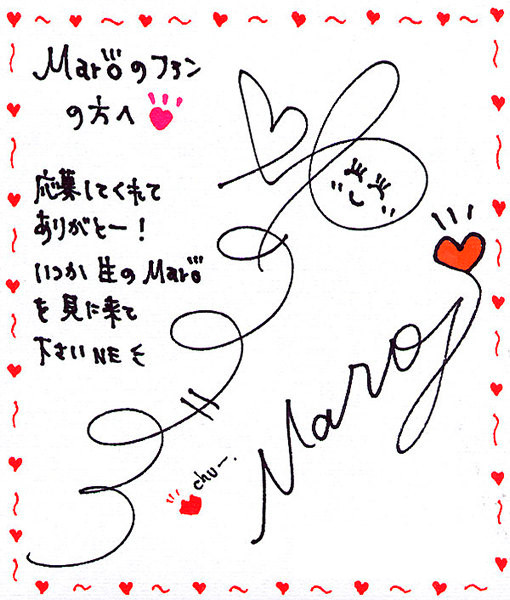 Maroのファン
の方へ
応募してくれて
ありがとー!
いつか生のMaro
を見に来て
下さいNE
chu〜.
Maro